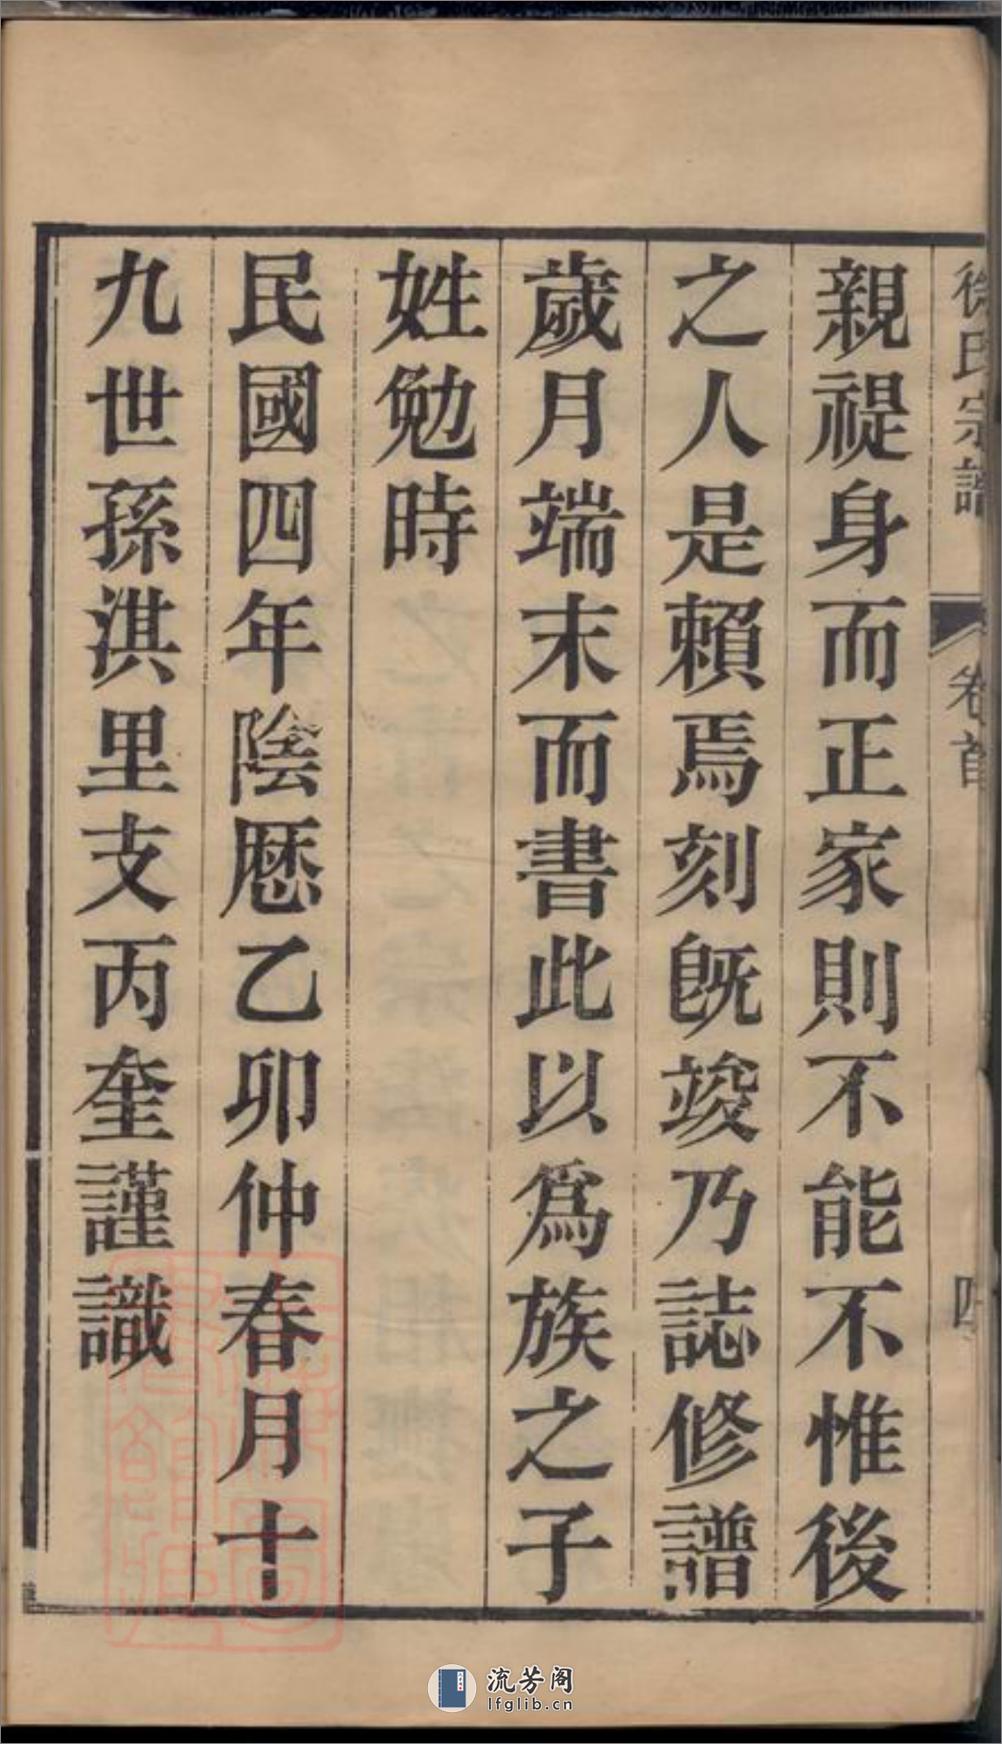 徐氏宗譜
卷首
四
親禔身而正家則不能不惟後
之人是賴焉刻旣竣乃誌修譜
歲月端末而書此以爲族之子
姓勉時
民國四年陰厯乙卯仲春月十
九世孫淇里支丙奎謹識
流芳阁
lfglib.cn